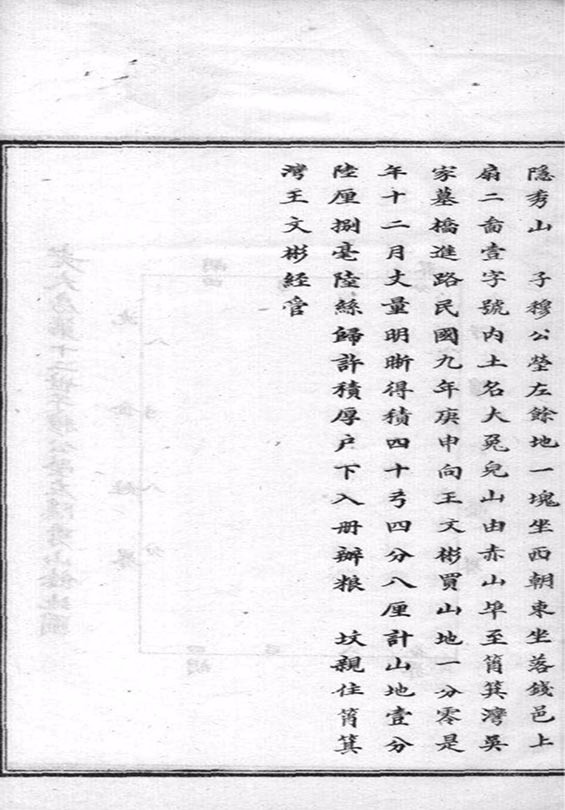 隱秀山　子穆公塋左餘地一塊坐西朝東坐落錢邑上
扇二啚壹字號內土名大兔兒山由赤山埠至筲箕灣吳
家墓橋進路民國九年庚申向王文彬買山地一分零是
年十二月丈量明晰得積四十弓四分八厘計山地壹分
陸厘捌毫陸絲歸許積厚户下入册辦粮　坟親住筲箕
灣王文彬經管